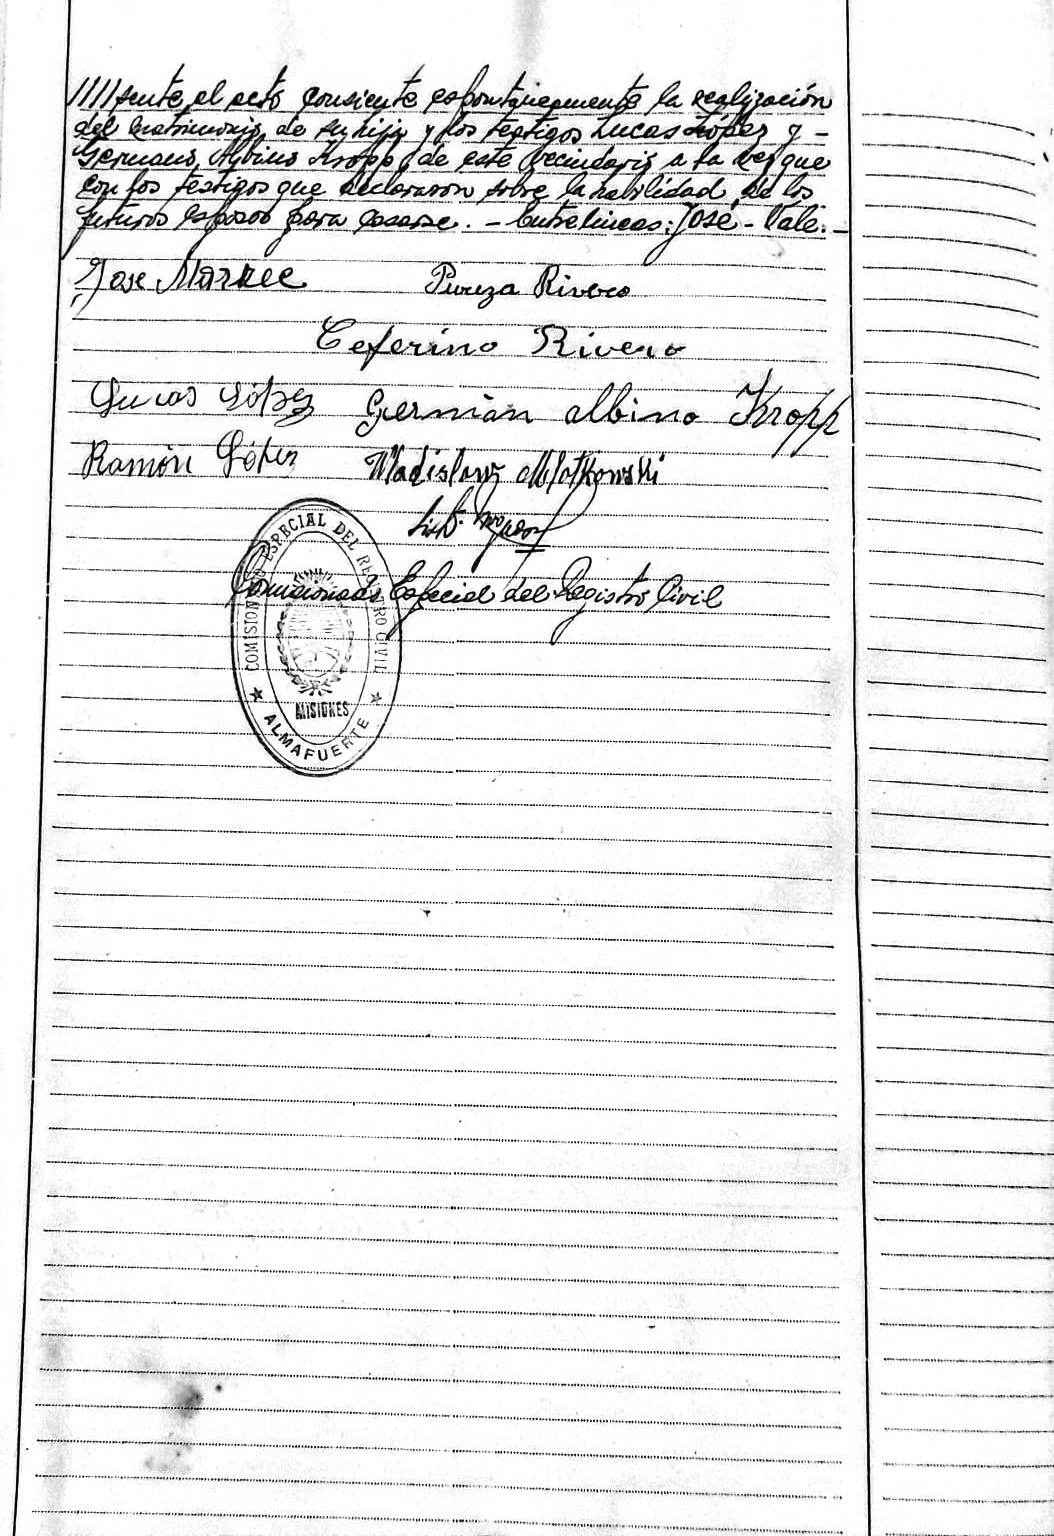 ////sente el acto consiente espontaneamente la realización
del matrimonio de su hija y los testigos Lucas López y -
Germano Albino Kropp, de este vecindario a la vez que
con los testigos que declararon sobre la habilidad de los
futuros esposos para casarse. - Entrelineas: José - Vale. -
Jose Pureza Rivero
Ceferino Rivero
Lucas López Germán albino Kropp
Ramón López Wladislao
COMISIONADO ESPECIAL DEL REGISTRO CIVIL
Comisionado Especial del Registro Civil
MISIONES
★ ALMAFUERTE ★